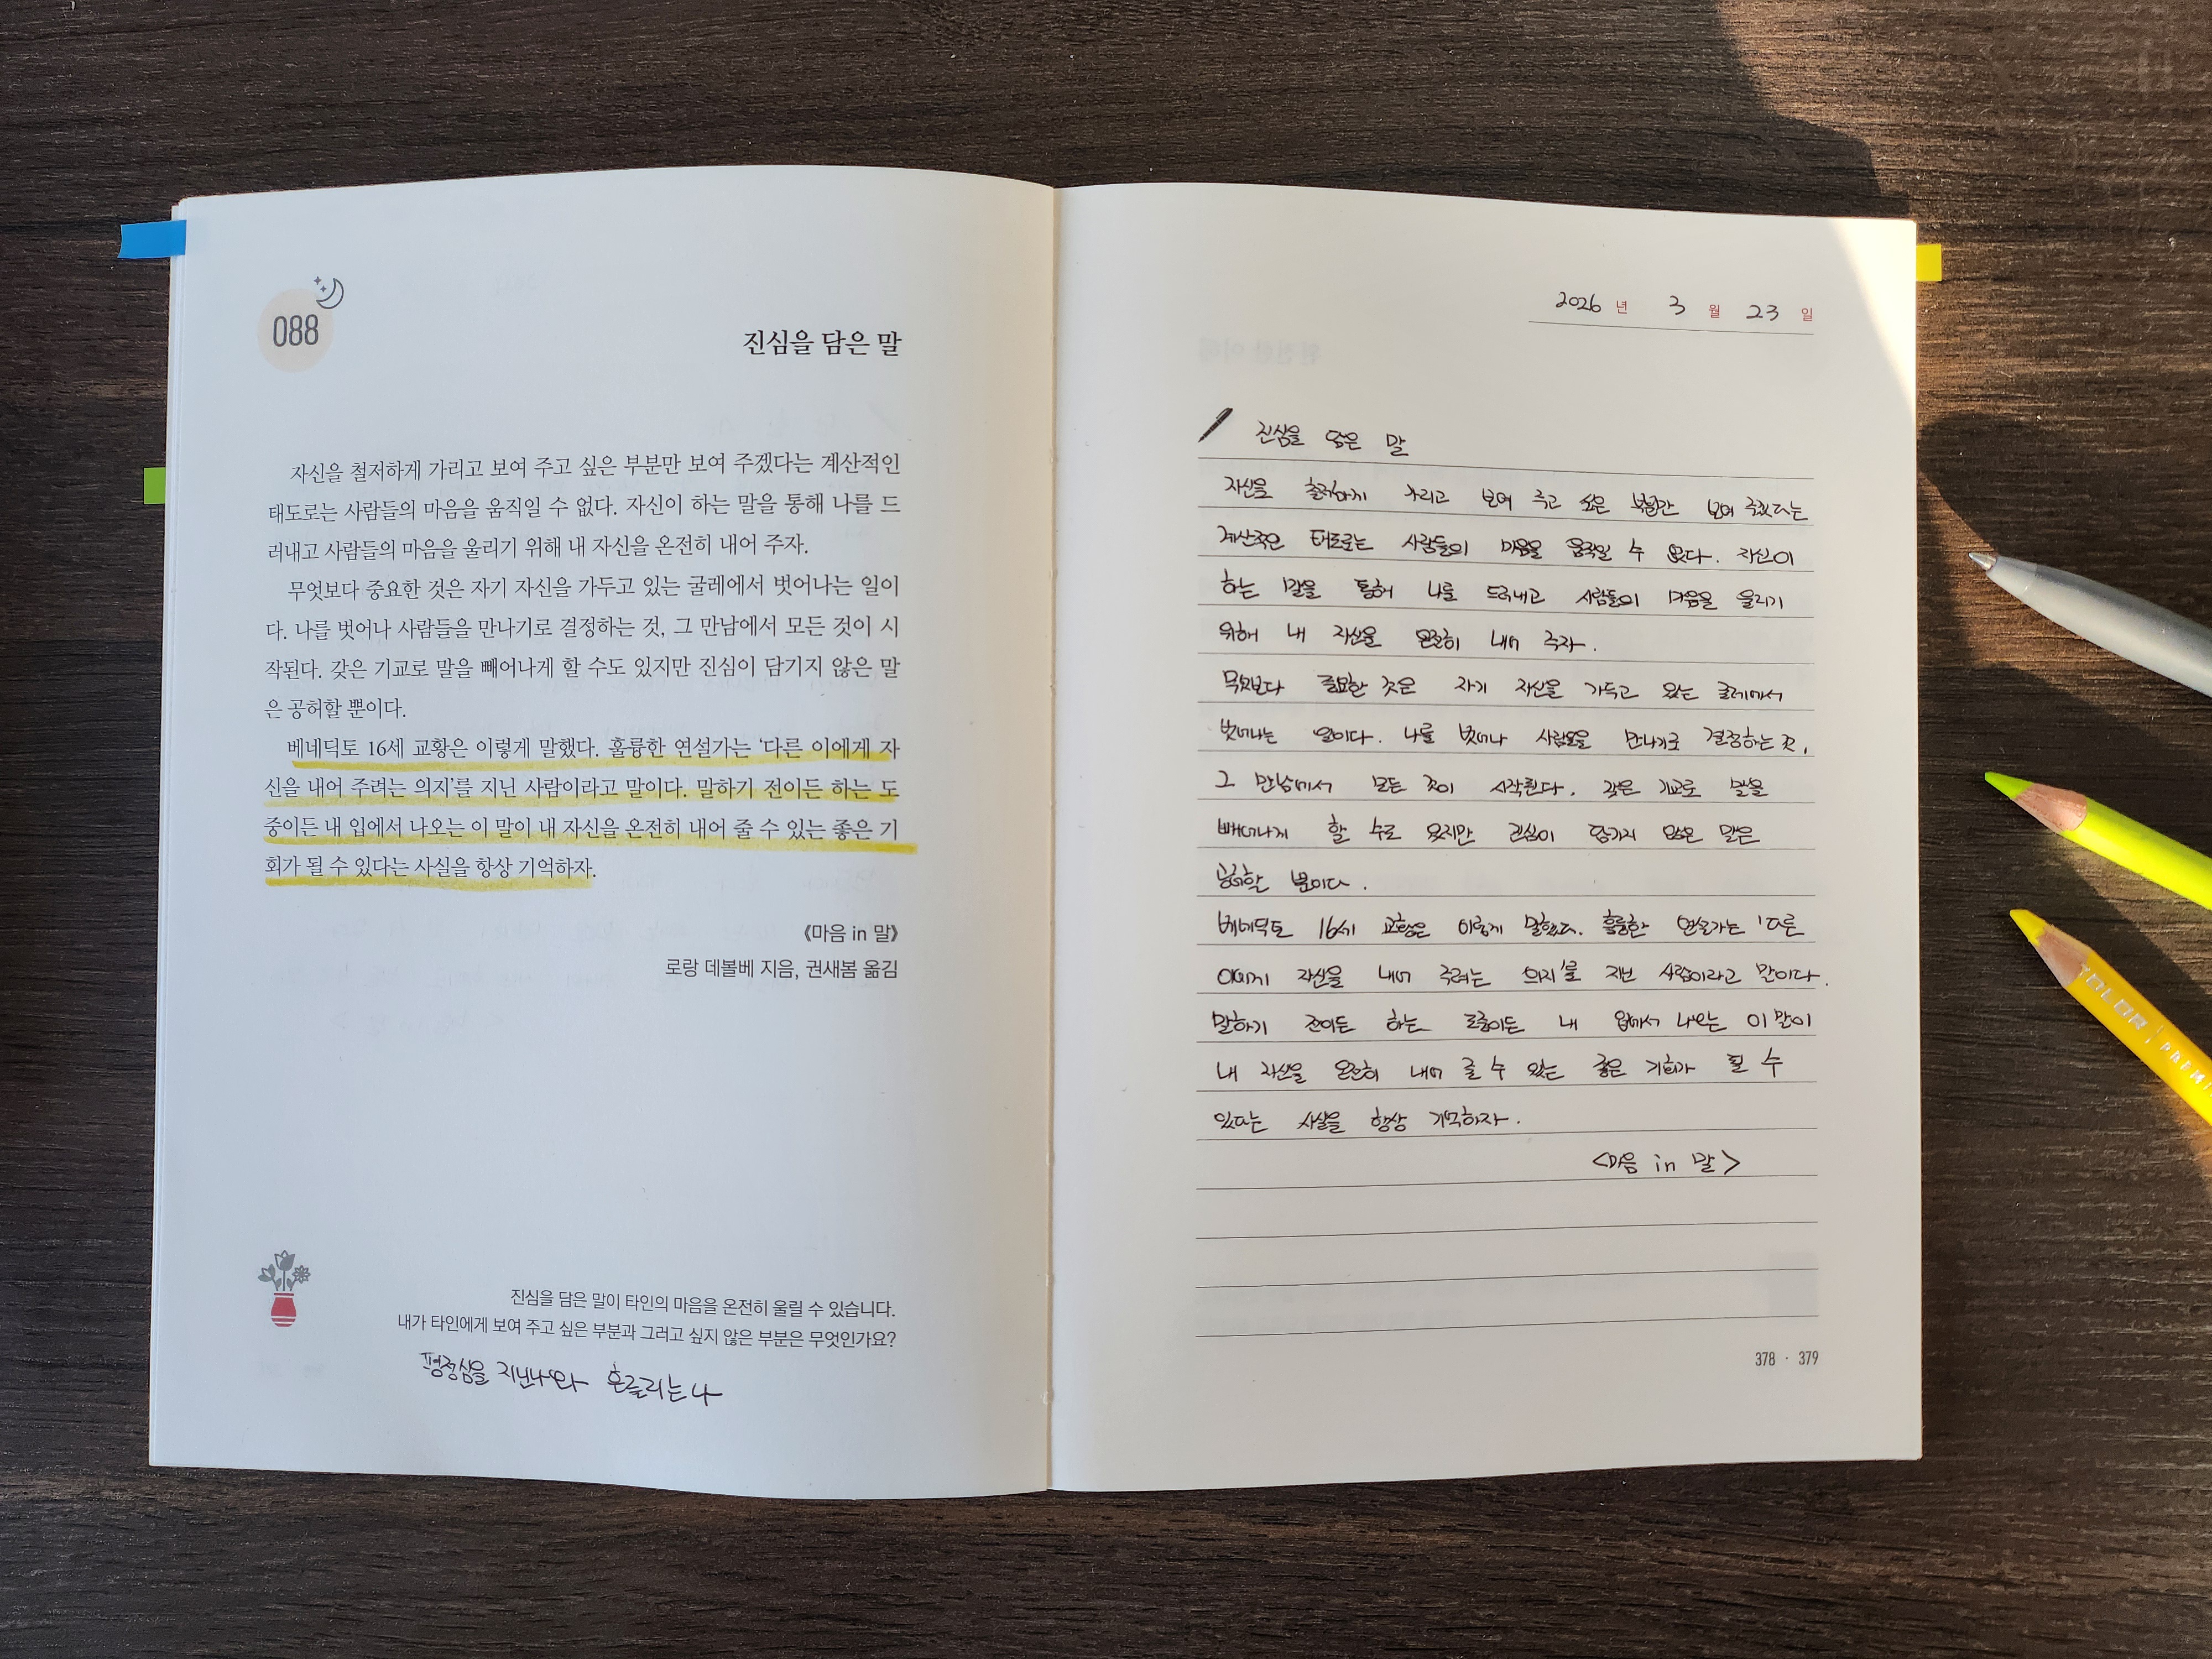 088
진심을 담은 말
자신을 철저하게 가리고 보여 주고 싶은 부분만 보여 주겠다는 계산적인
태도로는 사람들의 마음을 움직일 수 없다. 자신이 하는 말을 통해 나를 드
러내고 사람들의 마음을 울리기 위해 내 자신을 온전히 내어 주자.
무엇보다 중요한 것은 자기 자신을 가두고 있는 굴레에서 벗어나는 일이
다. 나를 벗어나 사람들을 만나기로 결정하는 것, 그 만남에서 모든 것이 시
작된다. 갖은 기교로 말을 빼어나게 할 수도 있지만 진심이 담기지 않은 말
은 공허할 뿐이다.
베네딕토 16세 교황은 이렇게 말했다. 훌륭한 연설가는 ‘다른 이에게 자
신을 내어 주려는 의지’를 지닌 사람이라고 말이다. 말하기 전이든 하는 도
중이든 내 입에서 나오는 이 말이 내 자신을 온전히 내어 줄 수 있는 좋은 기
회가 될 수 있다는 사실을 항상 기억하자.
《마음 in 말》
로랑 데볼베 지음, 권새봄 옮김
진심을 담은 말이 타인의 마음을 온전히 울릴 수 있습니다.
내가 타인에게 보여 주고 싶은 부분과 그러고 싶지 않은 부분은 무엇인가요?
평정심을 지닌 나와 흔들리는 나
2026 년 3 월 23 일
진심을 담은 말
자신을 철저하게 가리고 보여 주고 싶은 부분만 보여 주겠다는
계산적인 태도로는 사람들의 마음을 움직일 수 없다. 자신이
하는 말을 통해 나를 드러내고 사람들의 마음을 울리기
위해 내 자신을 온전히 내어 주자.
무엇보다 중요한 것은 자기 자신을 가두고 있는 굴레에서
벗어나는 일이다. 나를 벗어나 사람들을 만나기로 결정하는 것,
그 만남에서 모든 것이 시작된다. 갖은 기교로 말을
빼어나게 할 수도 있지만 진심이 담기지 않은 말은
공허할 뿐이다.
베네딕토 16세 교황은 이렇게 말했다. 훌륭한 연설가는 '다른
이에게 자신을 내어 주려는 의지'를 지닌 사람이라고 말이다.
말하기 전이든 하는 도중이든 내 입에서 나오는 이 말이
내 자신을 온전히 내어 줄 수 있는 좋은 기회가 될 수
있다는 사실을 항상 기억하자.
<마음 in 말>
378 · 379